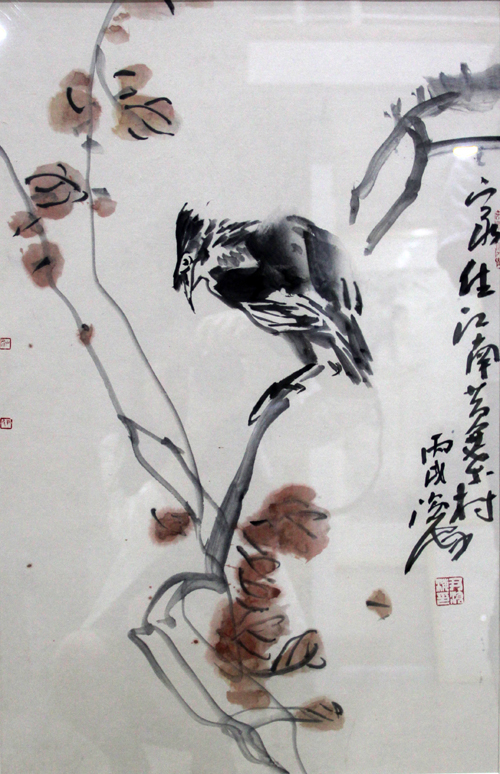 家住江南黄葉村
丙戌